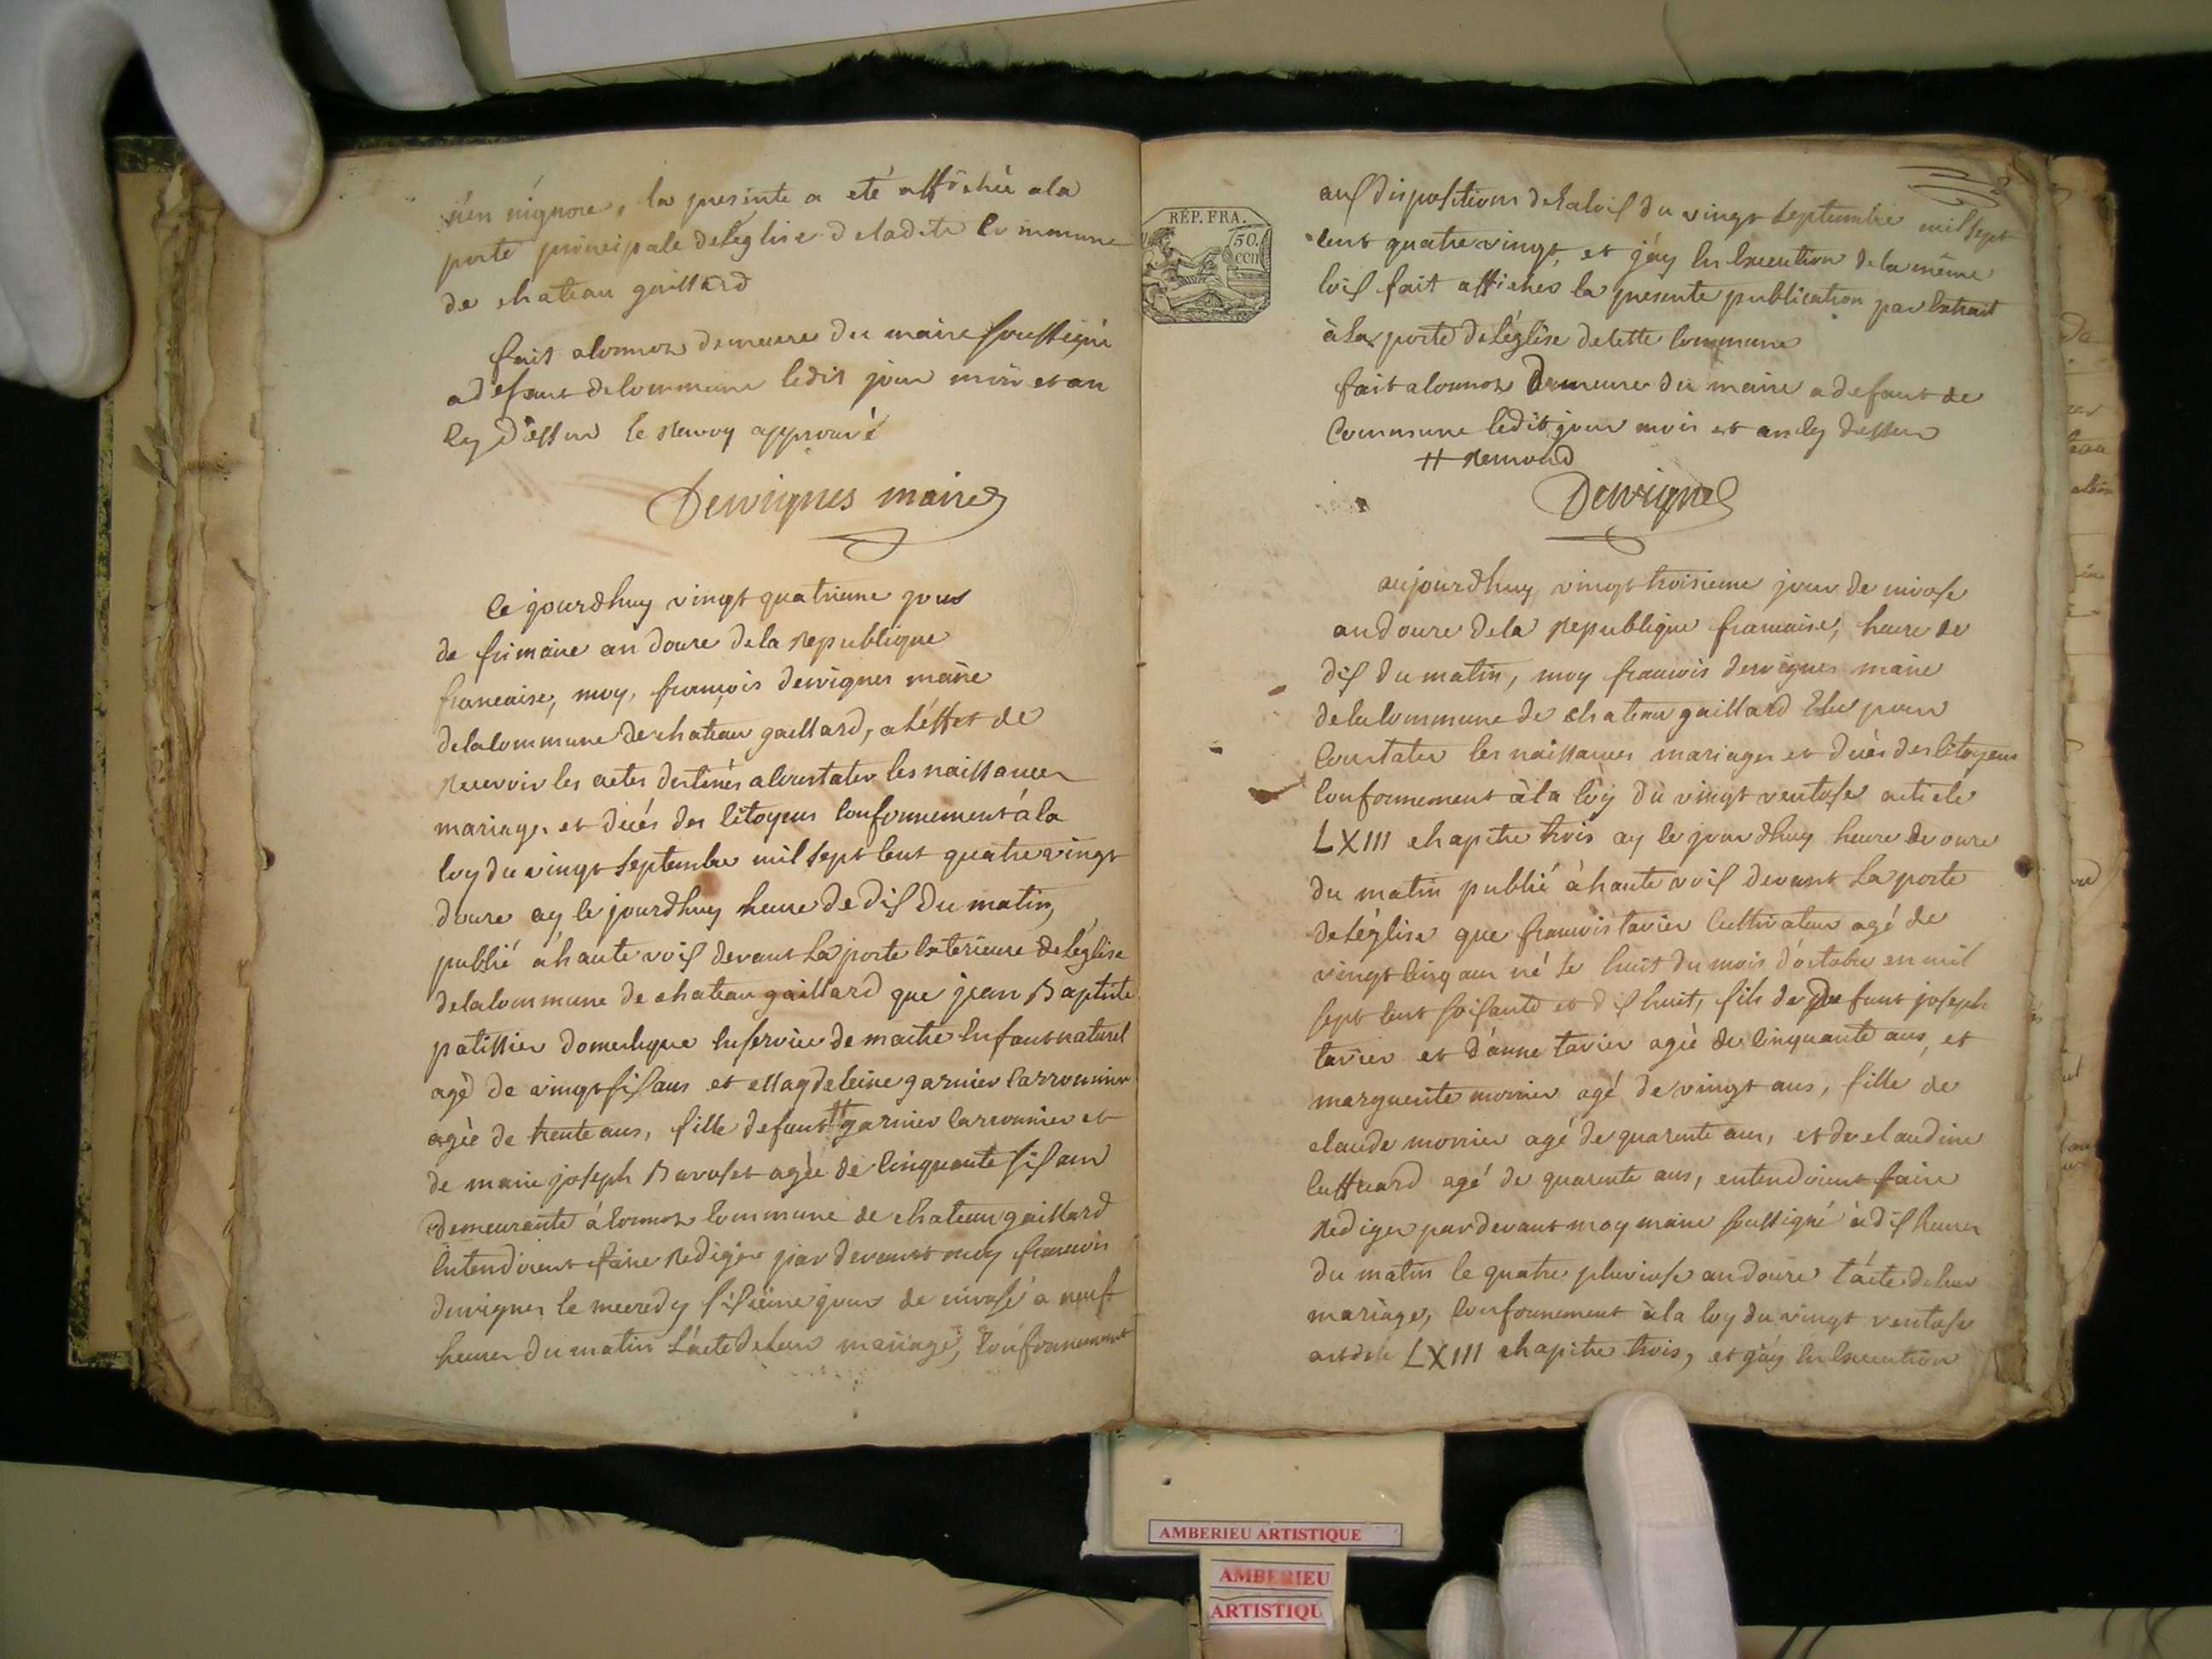 n'en n'ignore, la presente a eté affichée a la
porte principale de l'eglise de la dite commune
de chateau gaillard
fait a cormoz demeure du maire soussigné
a defaut de commune ledit jour mois et an
cy dessus le renvoy approuvé
Dervignes maire
Ce jourdhuy vingt quatrieme jour
de frimaire an douze de la republique
francaise, moy, françois dervignes maire
de la commune de chateau gaillard, a l'effet de
recevoir les actes destinés a constater les naissances
mariages et décés des citoyens conformement á la
loy du vingt septembre mil sept cent quatre vingt
douze ay le jourdhuy heure de dix du matin,
publié á haute voix devant la porte exterieure de l'eglise
de la commune de chateau gaillard que jean Baptiste
patissier domestique en service de maitre enfant naturel
agé de vingt six ans et Magdeleine garnier carronnier
agée de trente ans, fille defunt # garnier carronnier et
de marie joseph agée de cinquante six ans
demeurante á cormoz commune de chateau gaillard
entendoient faire rediger par devant moy francois
dervignes le mecredy sixieme jour de nivose a neuf
heures du matin l'acte de leur mariage, conformement
RÉP. FRA.
50.
cen
2
aux dispositions de la loix du vingt septembre mil sept
cent quatre vingt, et j'ay en execution de la même
loix fait afficher la presente publication par extrait
à la porte de l'église de cette commune
fait a cormoz demeure du maire a defaut de
Commune ledit jour mois et an cy dessus
# remond
Dervignes
aujourdhuy vingt troisieme jour de nivose
an douze de la republique francaise, heure de
dix du matin, moy francois dervignes maire
de la commune de chateau gaillard Elu pour
Constater les naissances mariages et décès des citoyens
conformement à la loy du vingt ventose article
LXIII chapitre trois ay le jourdhuy heure de onze
du matin publié à haute voix devant la porte
de l'église que francois tavier Cultivateur agé de
vingt cinq ans né le huit du mois d'octobre en mil
sept cent soixante et dix huit, fils de Defunt joseph
tavier et d'anne tavier agée de cinquante ans, et
marguerite monier agé de vingt ans, fille de
claude monier agé de quarente ans, et de claudine
agé de quarente ans, entendoient faire
rediger par devant moy maire soussigné à dix heures
du matin le quatre pluviose an douze l'acte de leur
mariage, conformement à la loy du vingt ventose
article LXIII chapitre trois, et j'ay en execution
AMBERIEU ARTISTIQUE
AMBERIEU
ARTISTIQU